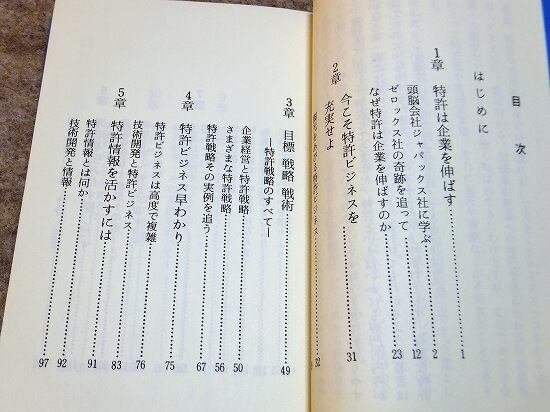 目次
はじめに……1
1章 特許は企業を伸ばす……2
頭脳会社ジャパックス社に学ぶ……12
ゼロックス社の奇跡を追って……23
なぜ特許は企業を伸ばすのか
2章 今こそ特許ビジネスを
充実せよ……31
ビジネス……32
3章 目標 戦略 戦術
―特許戦略のすべて―……49
企業経営と特許戦略……50
さまざまな特許戦略……56
特許戦略その実例を追う……67
4章 特許ビジネス早わかり……75
特許ビジネスは高度で複雑……76
技術開発と特許ビジネス……83
5章 特許情報を活かすには……91
特許情報とは何か……92
技術開発と情報……97